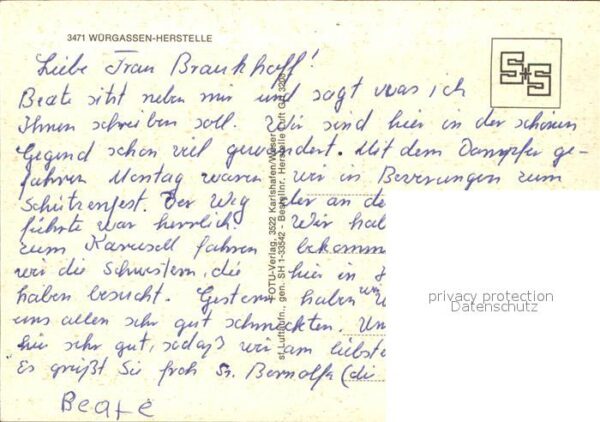 3471 WÜRGASSEN-HERSTELLE
S+S
Liebe Frau Brankhoff!
Beate sitzt neben mir und sagt was ich
Ihnen schreiben soll. Wir sind hier in der schönen
Gegend schon viel gewandert. Mit dem Dampfer ge-
fahren. Montag waren wir in Beverungen zum
Schützenfest. Der Weg der an de
führte war herrlich. Wir hab
zum Karusell fahren bekomm
wir die Schwestern, die hier in
haben besucht. Gestern haben wir
uns allen sehr gut schmeckten. Un
hier sehr gut, sodaß wir am liebste
Es grüßt Sie froh Sr. Bernolfa (di
Beate
FOTU-Verlag, 3522 Karlshafen/Weser
sf Luftaufn., gen. SH 1-33542 - Bestellnr. Herstelle Luft GR 3208
privacy protection
Datenschutz